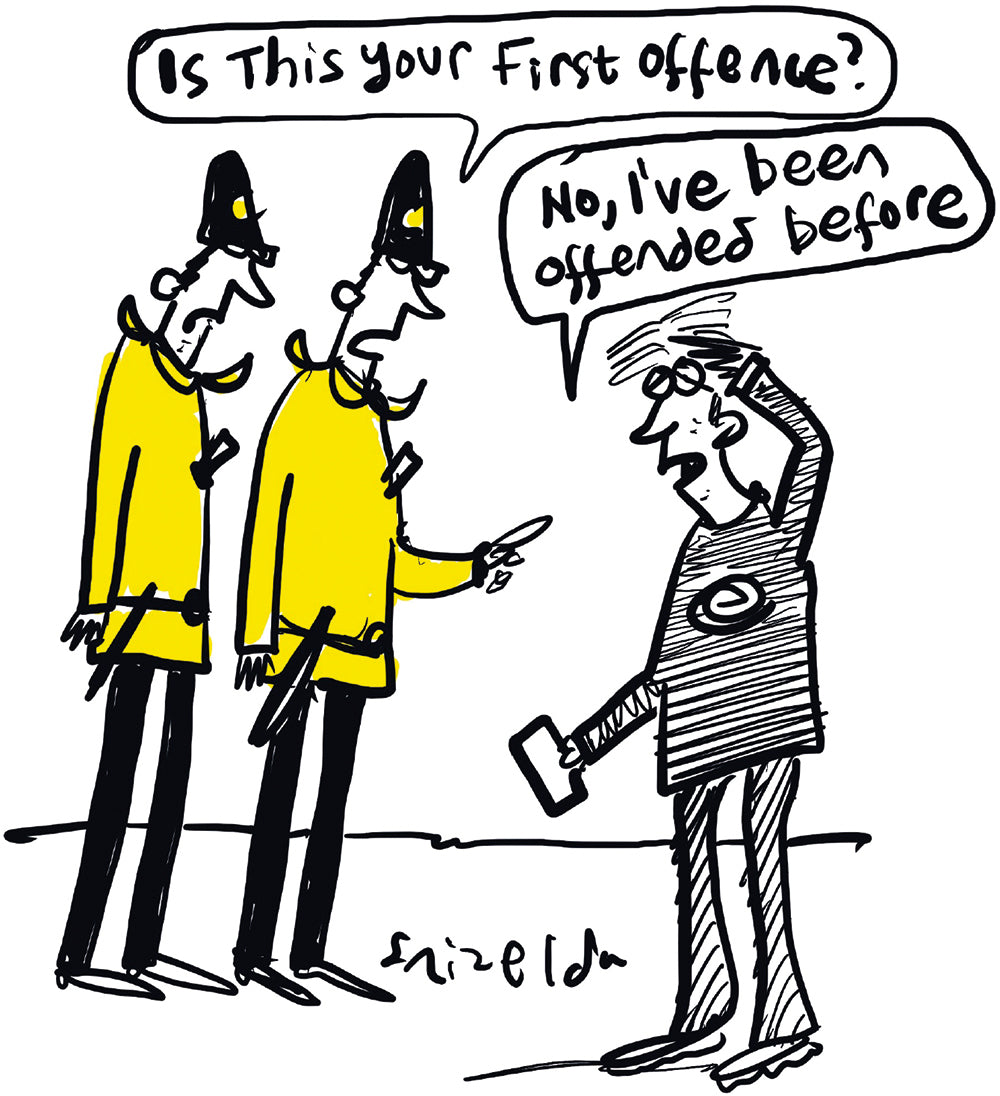 Is This your First offence?
No, I've been
offended before
e
Grizelda